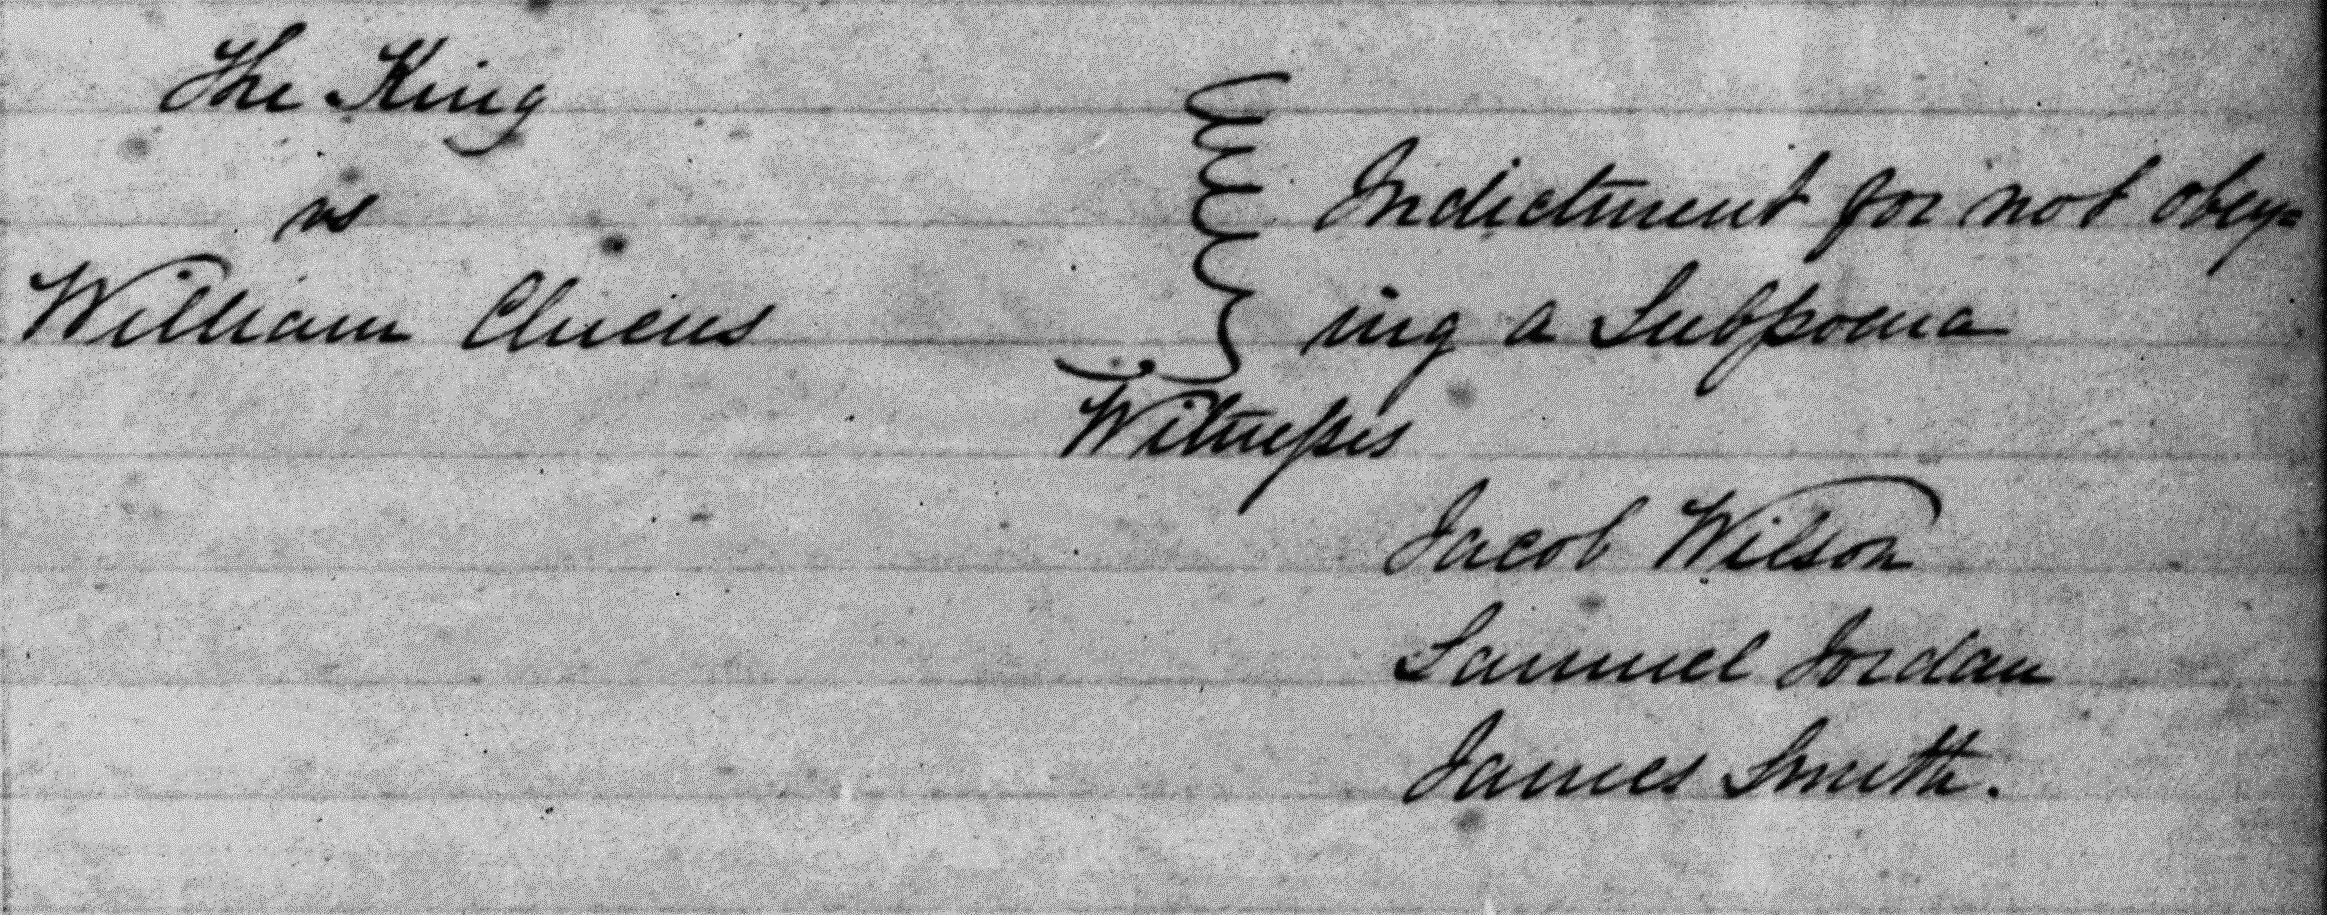 The King
vs
William
Indictment for not obey=
ing a Subpoena
Witnesses
Jacob Wilson
Samuel Jordan
James Smith.